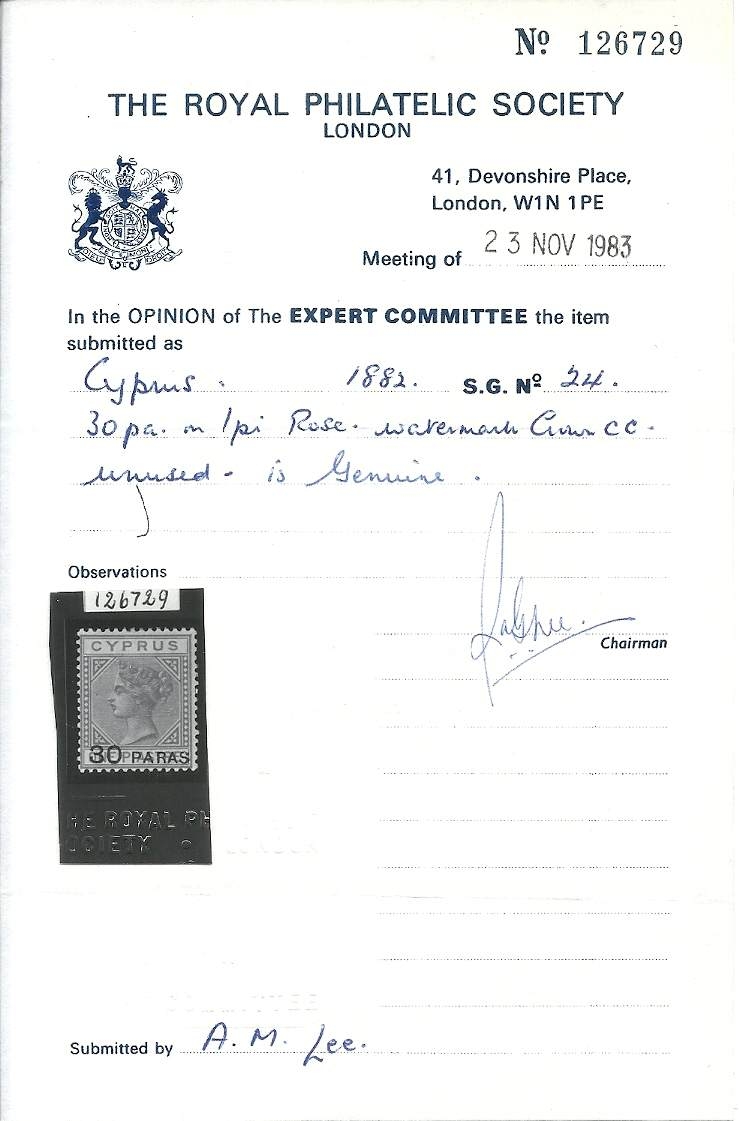 Nº 126729
THE ROYAL PHILATELIC SOCIETY
LONDON
41, Devonshire Place,
London, W1N 1PE
Meeting of 23 NOV 1983
In the OPINION of The EXPERT COMMITTEE the item
submitted as
Cyprus. 1882. S.G. Nº 24.
30pa. on 1pi Rose. watermark Crown CC.
unused - is Genuine.
Observations
126729
CYPRUS
30 PARAS
Chairman
HE ROYAL PH
OCIETY
Submitted by A. M. Lee.